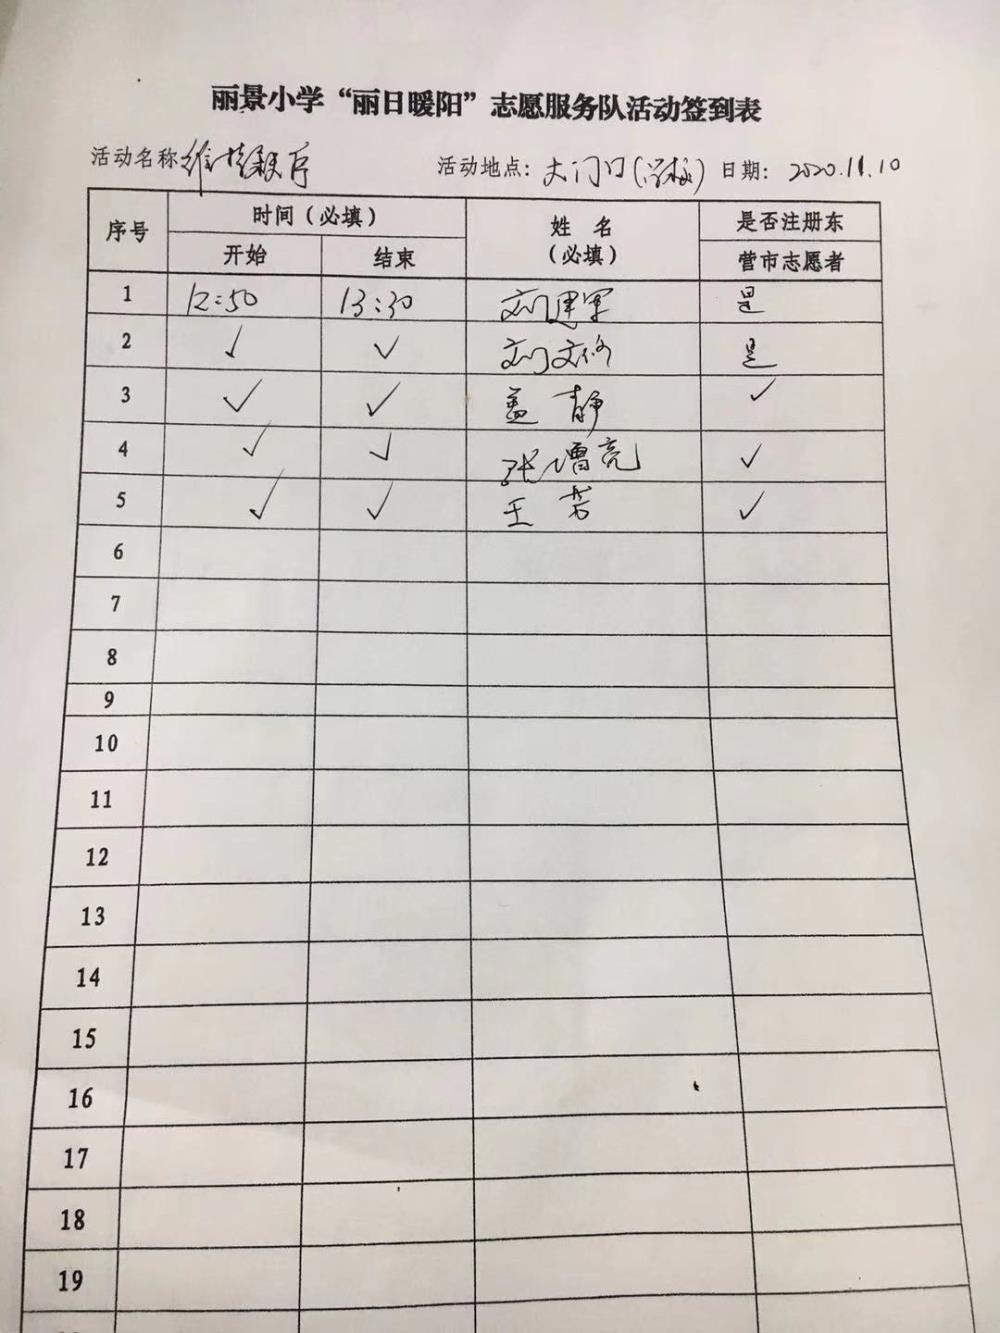 丽景小学“丽日暖阳”志愿服务队活动签到表
活动名称 维持秩序 活动地点：大门口(学校) 日期：2020.11.10
序号 时间（必填） 姓 名（必填） 是否注册东营市志愿者
开始 结束
1 12:50 13:30 刘建军 是
2 ✓ ✓ 刘文修 是
3 ✓ ✓ 盖 静 ✓
4 ✓ ✓ 张增亮 ✓
5 ✓ ✓ 王 芳 ✓
6
7
8
9
10
11
12
13
14
15
16
17
18
19